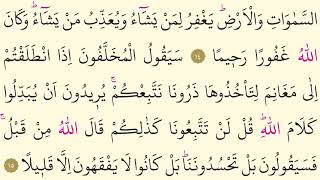 السَّمٰوَاتِ وَالْاَرْضِۜ يَغْفِرُ لِمَنْ يَشَٓاءُ وَيُعَذِّبُ مَنْ يَشَٓاءُۜ وَكَانَ
اللّٰهُ غَفُورًا رَح۪يمًا ﴿١٤﴾ سَيَقُولُ الْمُخَلَّفُونَ اِذَا انْطَلَقْتُمْ
اِلٰى مَغَانِمَ لِتَأْخُذُوهَا ذَرُونَا نَتَّبِعْكُمْۚ يُر۪يدُونَ اَنْ يُبَدِّلُوا
كَلَامَ اللّٰهِۜ قُلْ لَنْ تَتَّبِعُونَا كَذٰلِكُمْ قَالَ اللّٰهُ مِنْ قَبْلُۚ
فَسَيَقُولُونَ بَلْ تَحْسُدُونَنَاۜ بَلْ كَانُوا لَا يَفْقَهُونَ اِلَّا قَل۪يلًا ﴿١٥﴾